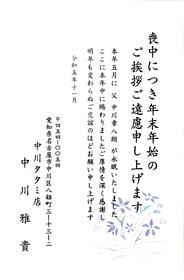 喪中につき年末年始の
ご挨拶ご遠慮申し上げます
本年五月に 父 中川章八朗が永眠いたしました
ここに本年中に賜わりましたご厚情を深く感謝し
明年も変わらぬご交誼のほどお願い申し上げます
令和五年十一月
〒四五四-〇〇五四
愛知県名古屋市中川区八剱町三-三三-二
中川タタミ店
中川雅貴